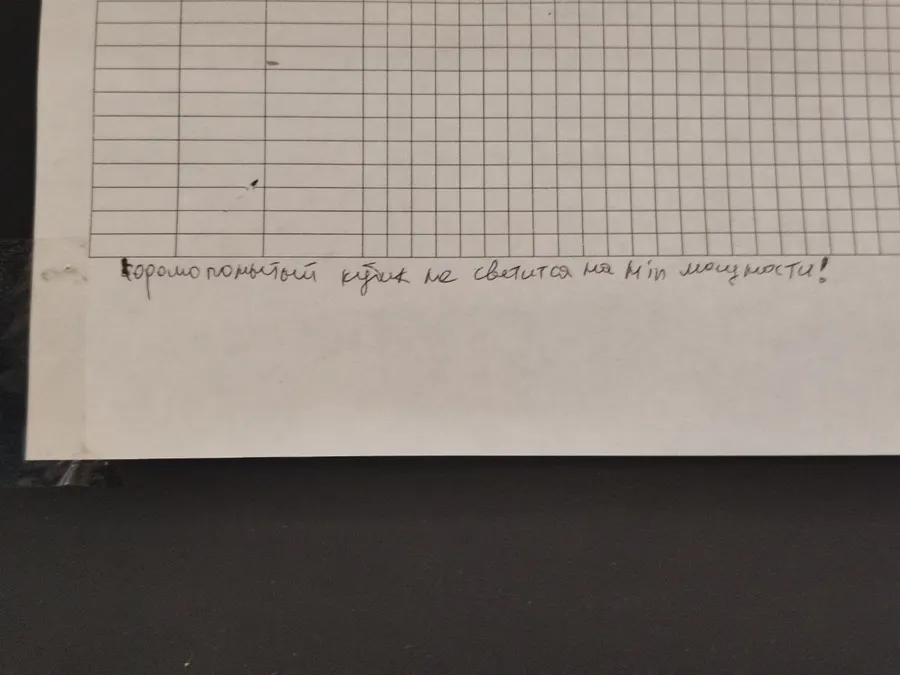 Хоромопомытый кубик не светится на Min мощности!